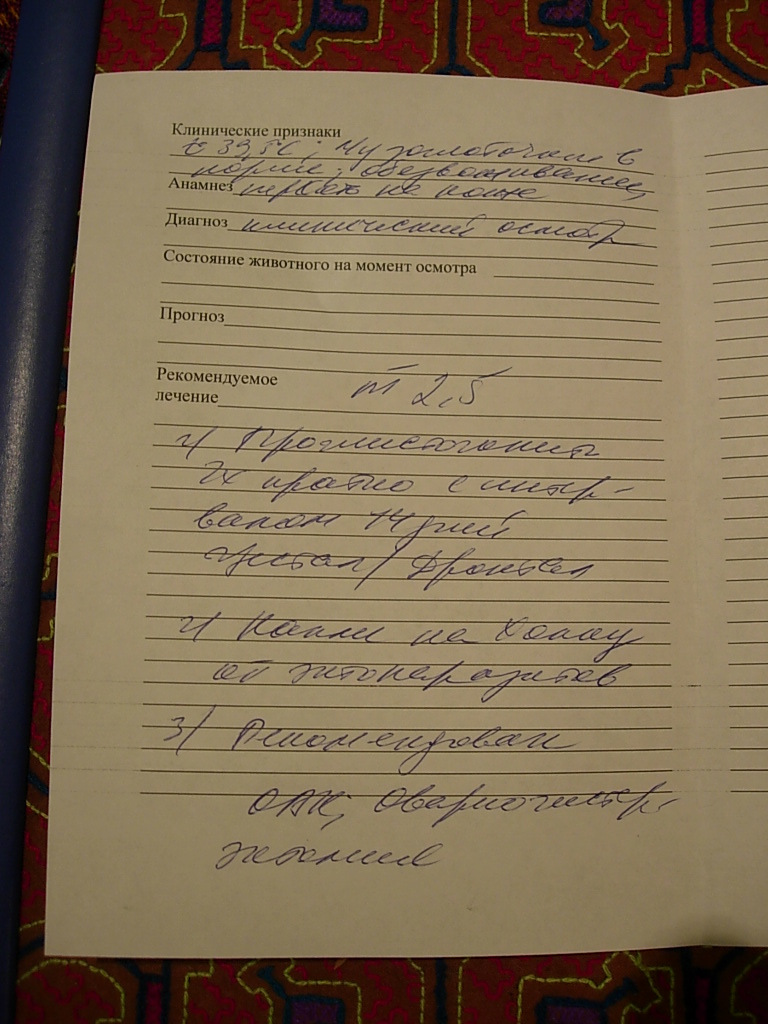 Клинические признаки
t 39,5C; л/у заглоточные в
норме, обезвоживание,
Анамнез на коже
Диагноз клинический осмотр
Состояние животного на момент осмотра
Прогноз
Рекомендуемое
лечение m 2,5
1) Проглистогонить
2х кратно с интер-
валом 14 дней
Цестал / Дронтал
2) Капли на холку
от эктопаразитов
3) Рекомендован
ОАК, Овариогистер-
эктомия